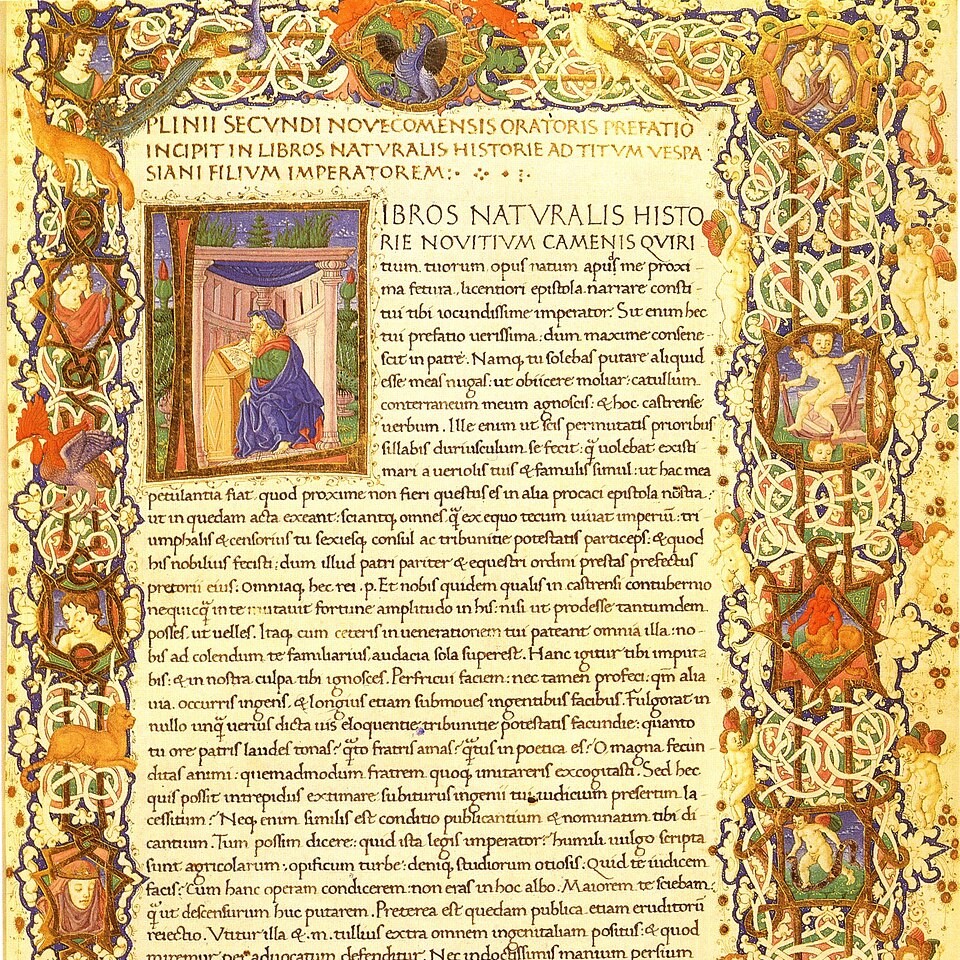 PLINII SECVNDI NOVECOMENSIS ORATORIS PREFATIO
INCIPIT IN LIBROS NATVRALIS HISTORIE AD TITVM VESPA
SIANI FILIVM IMPERATOREM:
LIBROS NATVRALIS HISTO
RIE NOVITIVM CAMENIS QVIRI
tium tuorum opus natum apud me proxi-
ma fetura, licentiori epistola narrare consti
tui tibi iocundissime imperator. Sit enim hec
tui prefatio verissima: dum maxime consene
scit in patre. Namq. tu solebas putare aliquid
esse meas nugas: ut obiicere moliar: catullum
conterraneum meum agnoscis: & hoc castrense
verbum. Ille enim ut scis permutatis prioribus
sillabis duriusculum se fecit: q̃ uolebat existi
mari a ueriolis tuis & famulis simul: ut hac mea
petulantia fiat quod proxime non fieri questus es in alia procaci epistola nostra:
ut in quedam acta exeant: sciantq. omnes q̃ ex equo tecum uiuat imperiũ: tri
umphalis & censorius tu sexiesq. consul ac tribunitie potestatis particeps. & quod
his nobilius fecisti: dum illud patri pariter & equestri ordini prestas prefectus
pretorii eius: Omniaq. hec rei .p. Et nobis quidem qualis in castrensi contubernio
nequicq̃ in te mutauit fortune amplitudo in his: nisi ut prodesse tantumdem
posses. ut uelles. Itaq. cum ceteris in uenerationem tui pateant omnia illa: no-
bis ad colendum te familiarius audacia sola superest. Hanc igitur tibi imputa
bis: & in nostra culpa tibi ignosces. Perfricui faciem: nec tamen profeci: qm̃ alia
uia. occurris ingens. & longius etiam submoues ingentibus facibus. Fulgorat in
nullo unq̃ uerius dicta uis eloquentie: tribunitie potestatis facundie: quanto
tu ore patris laudes tonas? q̃to fratris amas? q̃tus in poetica es? O magna fecun
ditas animi: quemadmodum fratrem quoq. imitareris excogitasti. Sed hec
quis possit intrepidus extimare: subiturus ingenii tui iudicium presertim la-
cessitum? Neq. enim similis est conditio publicantium & nominatim tibi di
cantium. Tum possim dicere: quid ista legis imperator? humili uulgo scripta
sunt agricolarum: opificum turbe: deniq. studiorum otiosis: Quid te iudicem
facis? Cum hanc operam condicerem: non eras in hoc albo. Maiorem te sciebam:
q̃ ut descensurum huc putarem. Preterea est quedam publica etiam eruditorũ
reiectio. Vtitur illa & .m. tullius extra omnem ingenitaliam positus: & quod
miremur per aduocatum defenditur. Nec indoctissimis manium persium